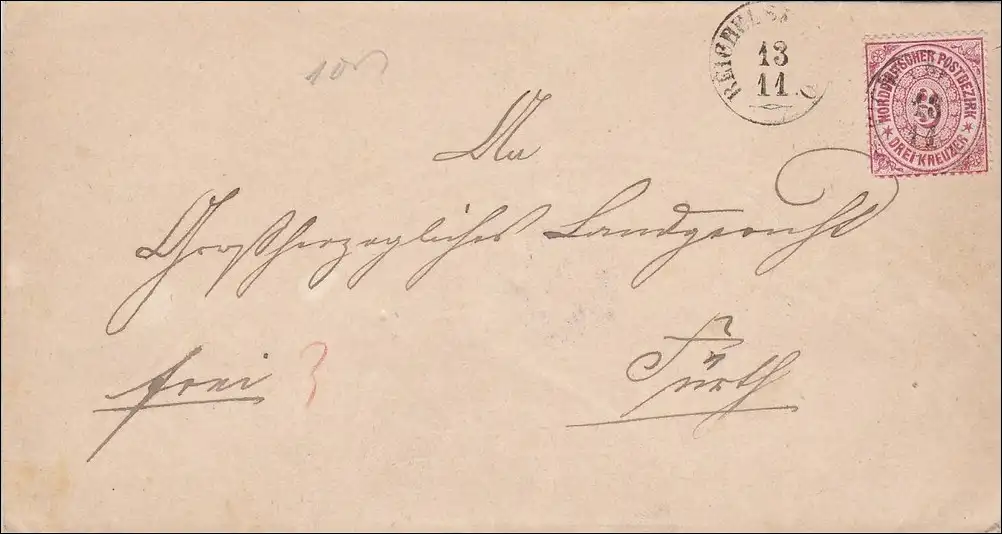 REICHELS
13
11
NORDDEUTSCHER POSTBEZIRK
3
13
11
DREI KREUZER
An
Großherzogliches Landgericht
frei 3
Fürth